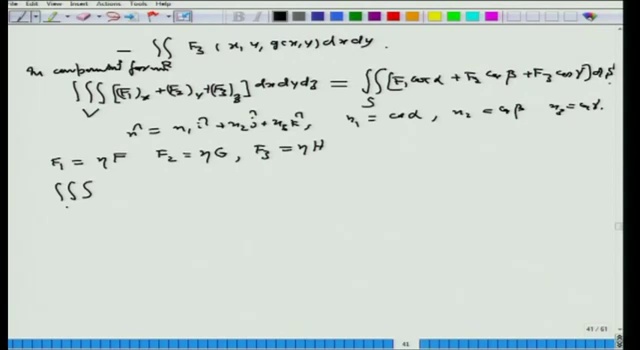 File Edit View Insert Actions Tools Help
− ∬_R F₃ (x, y, g(x,y)) dx dy .
In component form
∭_V [(F₁)_x + (F₂)_y + (F₃)_z] dx dy dz = ∬_S [F₁ cos α + F₂ cos β + F₃ cos γ] dS
n̂ = n₁ î + n₂ ĵ + n₃ k̂ , n₁ = cos α , n₂ = cos β n₃ = cos γ.
F₁ = η F F₂ = η G , F₃ = η H
∭
41 / 61
41